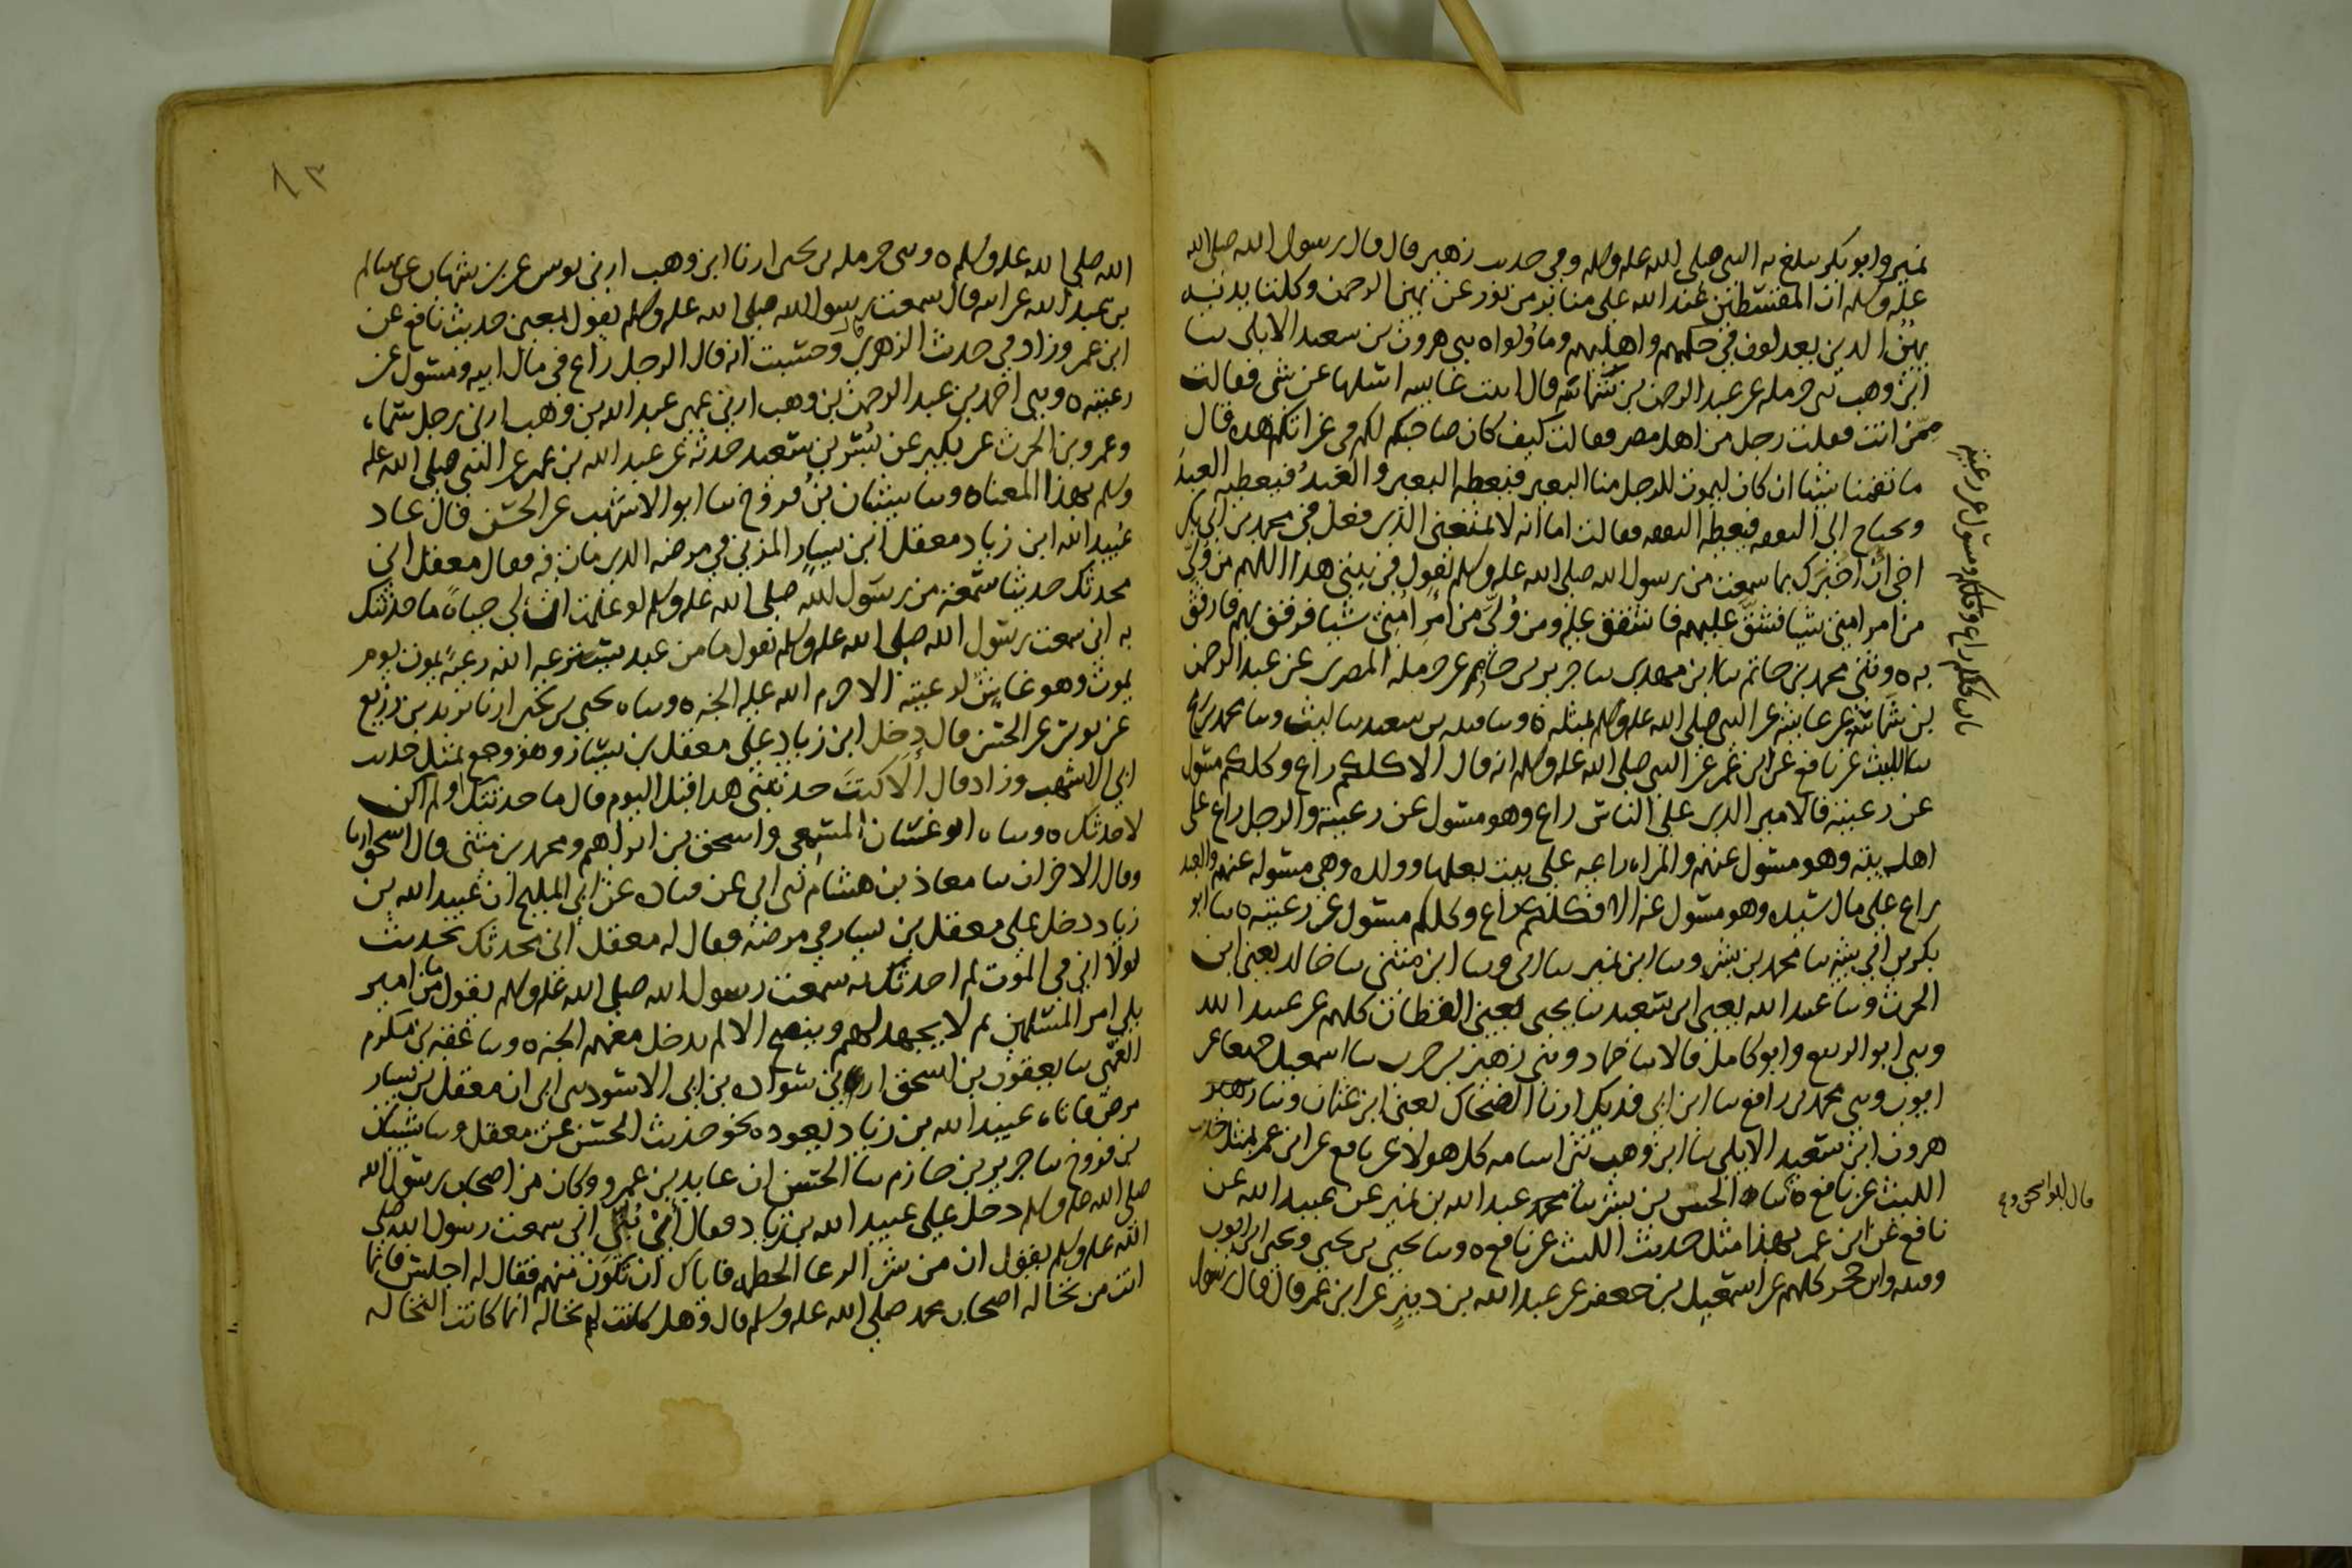 نمير وابو بكر يبلغ به النبي صلى الله عليه وسلم وفي حديث زهير قال قال رسول الله صلى الله
عليه وسلم ان المقسطين عند الله على منابر من نور عن يمين الرحمن وكلتا يديه
يمين الذين يعدلون في حكمهم واهليهم وما ولوا ه ثني هرون بن سعيد الايلي ثنا
ابن وهب ثني حرمله عن عبد الرحمن بن شماسة قال اتيت عايشه اسئلها عن شي فقالت
ممن انت فقلت رجل من اهل مصر فقالت كيف كان صاحبكم لكم في غزاتكم هذه فقال
ما نقمنا شيئا ان كان ليموت للرجل منا البعير فيعطيه البعير والعبد فيعطيه العبد
ويحتاج الى النفقه فيعطيه النفقه فقالت اما انه لا يمنعني الذي فعل في محمد بن ابي بكر
اخي ان اخبرك بما سمعت من رسول الله صلى الله عليه وسلم يقول في بيتي هذا اللهم من ولي
من امر امتي شيئا فشق عليهم فاشقق عليه ومن ولي من امر امتي شيئا فرفق بهم فارفق
به ه وثني محمد بن حاتم ثنا ابن مهدي ثنا جرير بن حازم عن حرملة المصري عن عبد الرحمن
بن شماسة عن عايشه عن النبي صلى الله عليه وسلم بمثله ه وثنا قتيبه بن سعيد ثنا ليث وثنا محمد بن رمح
ثنا الليث عن نافع عن ابن عمر عن النبي صلى الله عليه وسلم انه قال الا كلكم راع وكلكم مسئول
عن رعيته فالامير الذي على الناس راع وهو مسئول عن رعيته والرجل راع على
اهل بيته وهو مسئول عنهم والمراه راعيه على بيت بعلها وولده وهي مسئوله عنهم والعبد
راع على مال سيده وهو مسئول عنه الا فكلكم راع وكلكم مسئول عن رعيته ه ثنا ابو
بكر بن ابي شيبه ثنا محمد بن بشر وثنا ابن نمير ثنا ابي وثنا ابن مثنى ثنا خالد يعني ابن
الحرث وثنا عبيد الله يعني ابن سعيد ثنا يحيى يعني القطان كلهم عن عبيد الله
وثني ابو الربيع وابو كامل قالا ثنا حماد وثني زهير بن حرب ثنا اسمعيل جميعا عن
ايوب وثني محمد بن رافع ثنا ابن ابي فديك ارنا الضحاك يعني ابن عثمان وثنا
هرون ابن سعيد الايلي ثنا ابن وهب ثني اسامه كل هولا عن نافع عن ابن عمر بمثل حديث
الليث عن نافع ه ثنا الحسن بن بشر ثنا محمد عبد الله بن نمير عن عبيد الله عن
نافع عن ابن عمر بهذا مثل حديث الليث عن نافع ه وثنا يحيى بن يحيى ويحيى ابن ايوب
وقتيبه وابن حجر كلهم عن اسمعيل بن جعفر عن عبد الله بن دينر عن ابن عمر قال قال رسول
قال ابو اسحق و
الله صلى الله عليه وسلم ه وثني حرمله بن يحيى ارنا ابن وهب ارني يونس عن بن شهاب عن سالم
بن عبد الله عن ابيه قال سمعت رسول الله صلى الله عليه وسلم يقول بمعنى حديث نافع عن
ابن عمر وزاد في حديث الزهري وحسبت انه قال الرجل راع في مال ابيه ومسئول عن
رعيته ه وثني احمد بن عبد الرحمن بن وهب ارني عمي عبد الله بن وهب ارني رجل سماه
وعمرو بن الحرث عن بكير عن بسر بن سعيد حدثه عن عبد الله بن عمر عن النبي صلى الله عليه
وسلم بهذا المعناه وثنا شيبان بن فروخ ثنا ابو الاشهب عن الحسن قال عاد
عبيد الله ابن زياد معقل ابن يسار المزني في مرضه الذي مات فيه فقال معقل اني
محدثك حديثا سمعته من رسول الله صلى الله عليه وسلم لو علمت ان لي حياةً ما حدثتك
به اني سمعت رسول الله صلى الله عليه وسلم يقول ما من عبد يسترعيه الله رعيةً يموت يوم
يموت وهو غاش لرعيته الا حرم الله عليه الجنه ه وثنا ه يحيى بن يحيى ارنا يزيد بن زريع
عن يونس عن الحسن قال دخل ابن زياد على معقل بن يسار وهو وجع بمثل حديث
ابي الاشهب وزاد قال ألا كنتَ حدثتني هذا قبل اليوم قال ما حدثتك او لم اكن
لاحدثك ه وثنا ه ابو غسان المسمعي واسحق بن ابراهيم ومحمد بن مثنى قال اسحق ارنا
وقال الاخران ثنا معاذ بن هشام ثني ابي عن قتاده عن ابي المليح ان عبيد الله بن
زياد دخل على معقل بن يسار في مرضه فقال له معقل اني محدثك بحديث
لولا اني في الموت لم احدثك به سمعت رسول الله صلى الله عليه وسلم يقول ما من امير
يلي امر المسلمين ثم لا يجهد لهم وينصح الا لم يدخل معهم الجنه ه وثنا عقبه بن مكرم
العمي ثنا يعقوب بن اسحق ارني سواده بن ابي الاسود ثني ابي ان معقل بن يسار
مرض فاتاه عبيد الله بن زياد يعوده نحو حديث الحسن عن معقل وثنا شيبان
بن فروخ ثنا جرير بن حازم ثنا الحسن ان عايذ بن عمرو وكان من اصحاب رسول الله
صلى الله عليه وسلم دخل على عبيد الله بن زياد فقال أيْ بُنَيَّ اني سمعت رسول الله صلى
الله عليه وسلم يقول ان من شر الرعا الحطمه فاياك ان تكون منهم فقال له اجلس فانما
انت من نخاله اصحاب محمد صلى الله عليه وسلم قال وهل كانت لهم نخاله انما كانت النخاله